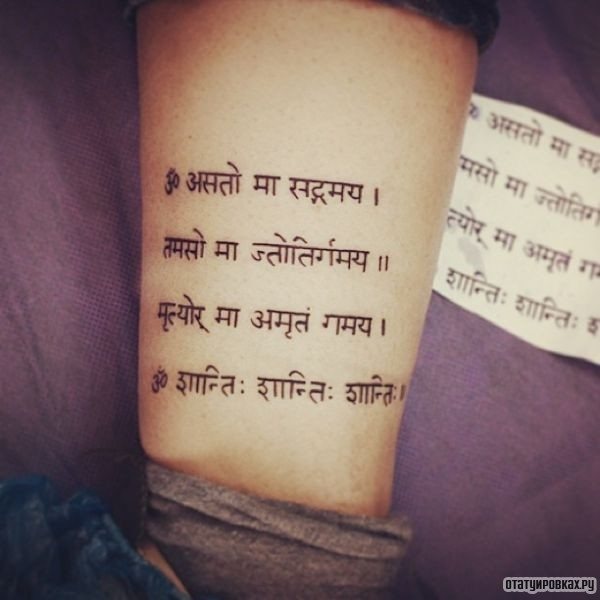 ॐ असतो मा सद्गमय ।
तमसो मा ज्तोतिर्गमय ॥
मृत्योर् मा अमृतं गमय ।
ॐ शान्तिः शान्तिः शान्तिः ॥
असतो मा
मसो मा ज्तोतिर्ग
त्योर् मा अमृतं गम
शान्तिः शान्तिः श
ОТАТУИРОВКАХ.РУ